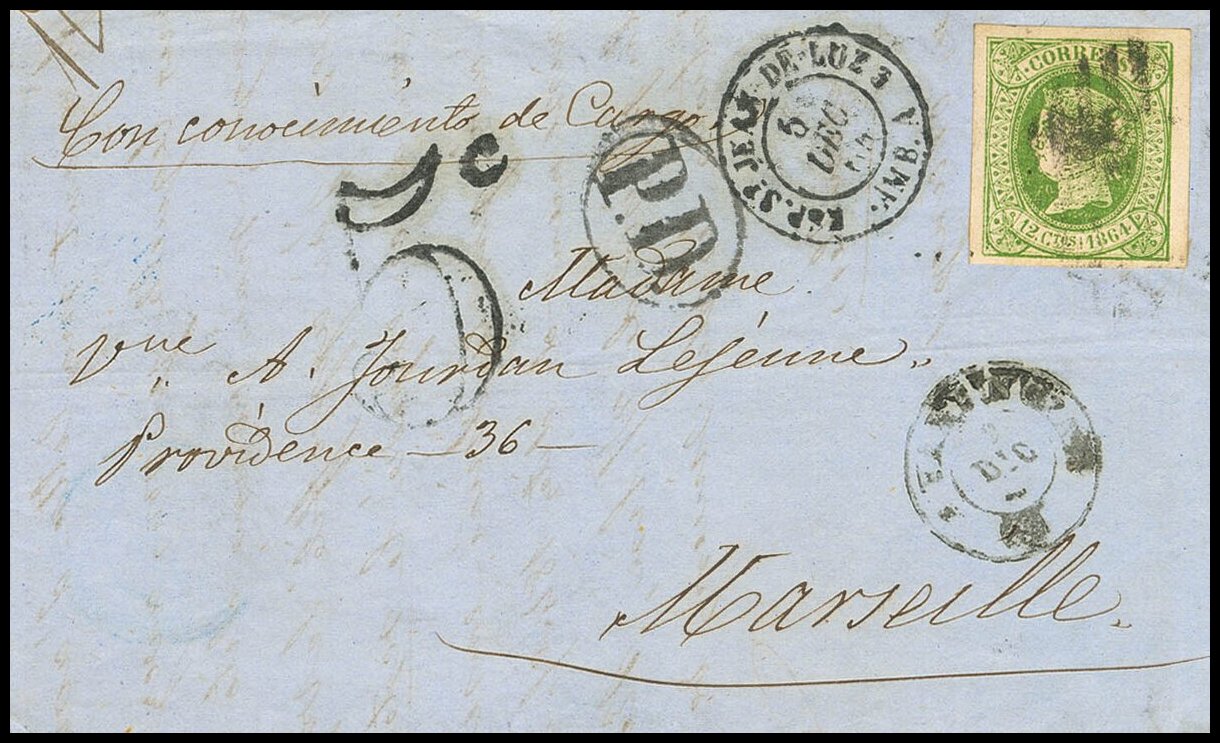 Con conocimiento de Cargo
CORREOS
12 CTOS. 1864
ESP. ST. JEAN-DE-LUZ 3 AMB. A
5
DEC
64
P.D.
5c
Madame
Vue A. Jourdan Lejeune.
Providence - 36 -
DIC
Marseille.